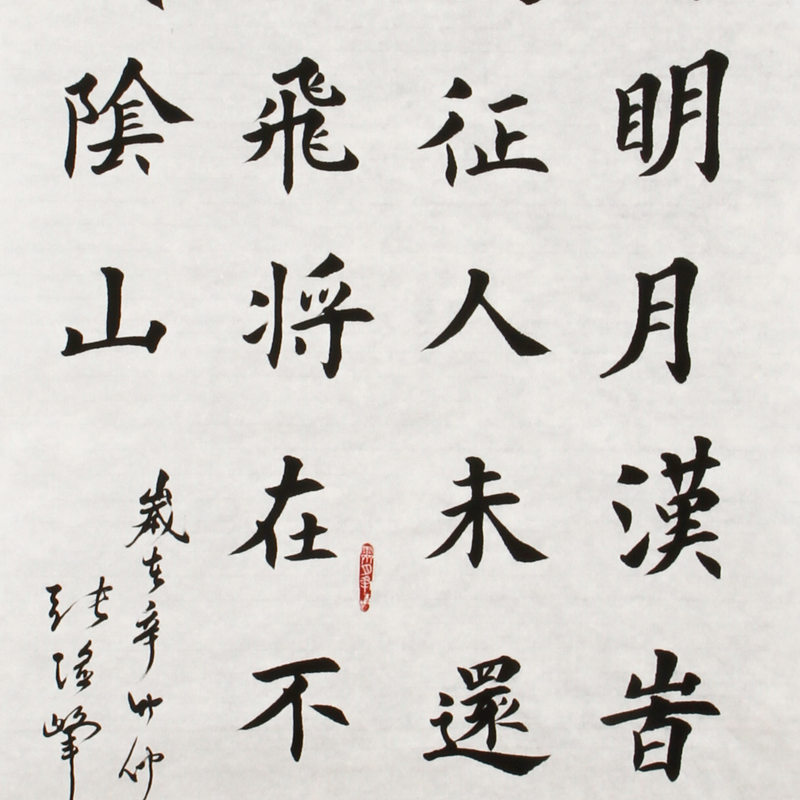 明月漢旹
征人未還
飛将在不
陰山
歲在辛卯仲
張
峰